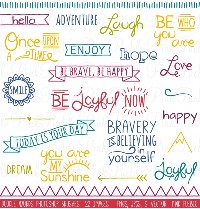 hello
ADVENTURE
Laugh
BE WHO
you are
ONCE
UPON
A TIME
ENJOY
hope
Love
BE BRAVE, BE HAPPY
SMILE
BE joyful NOW
happy
TODAY IS YOUR DAY
BRAVERY
IS BELIEVING
in
yourself
DREAM
you are
MY
Sunshine
PHOTOSHOP BRUSHES